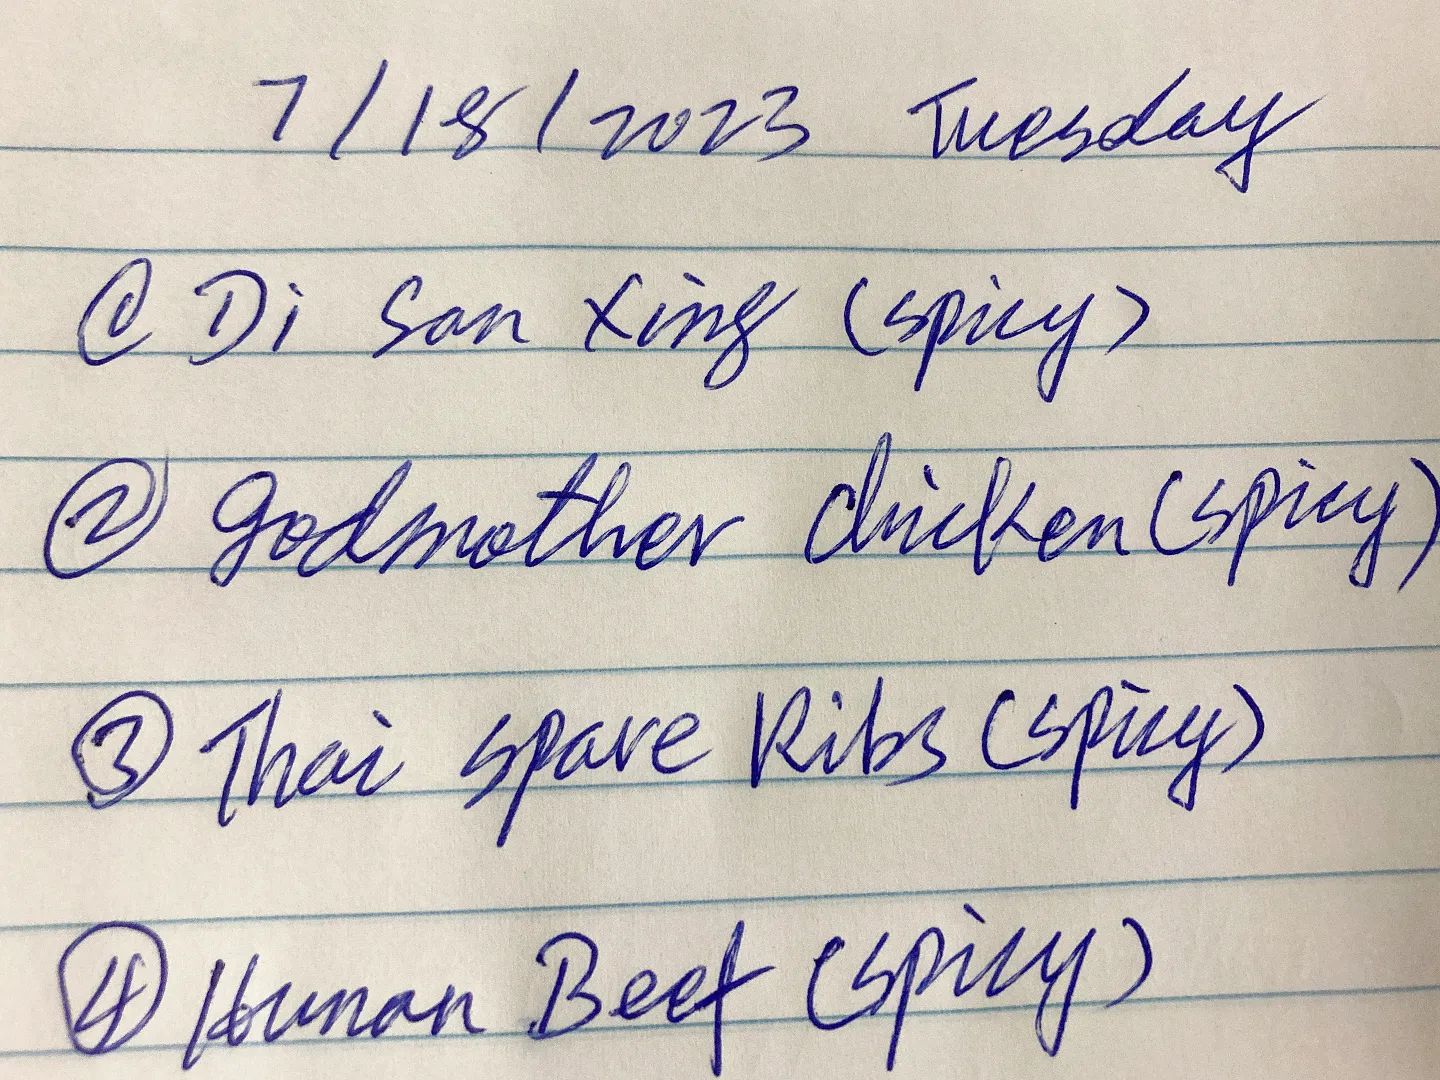 7/18/2023 Tuesday
① Di San Xing (spicy)
② Godmother chicken (spicy)
③ Thai spare Ribs (spicy)
④ Hunan Beef (spicy)